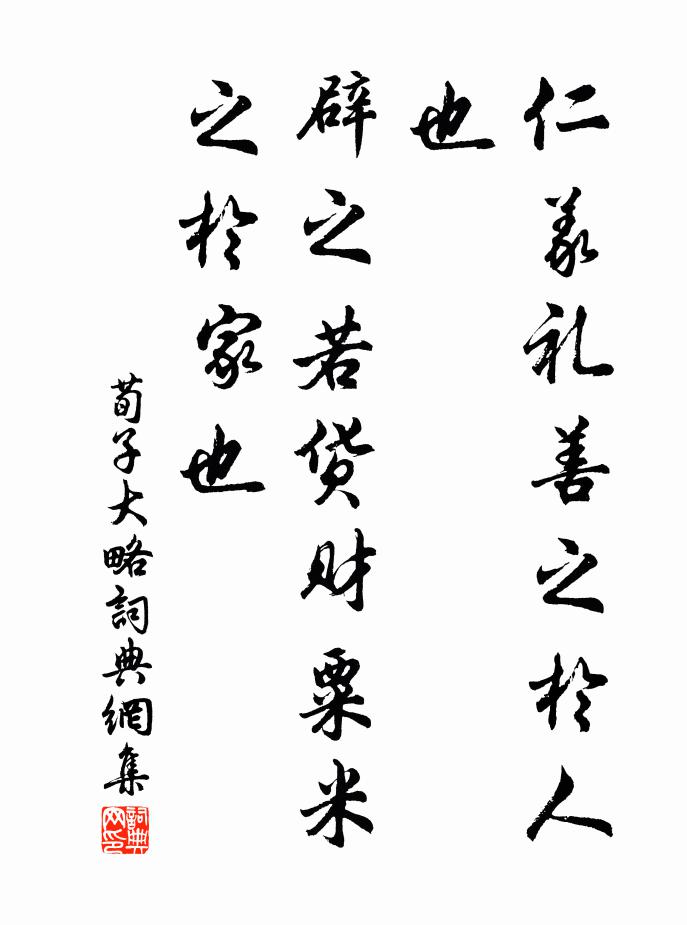 仁义礼善之於人
也
辟之若货财粟米
之於家也
荀子大略詞典網集
詞典网印